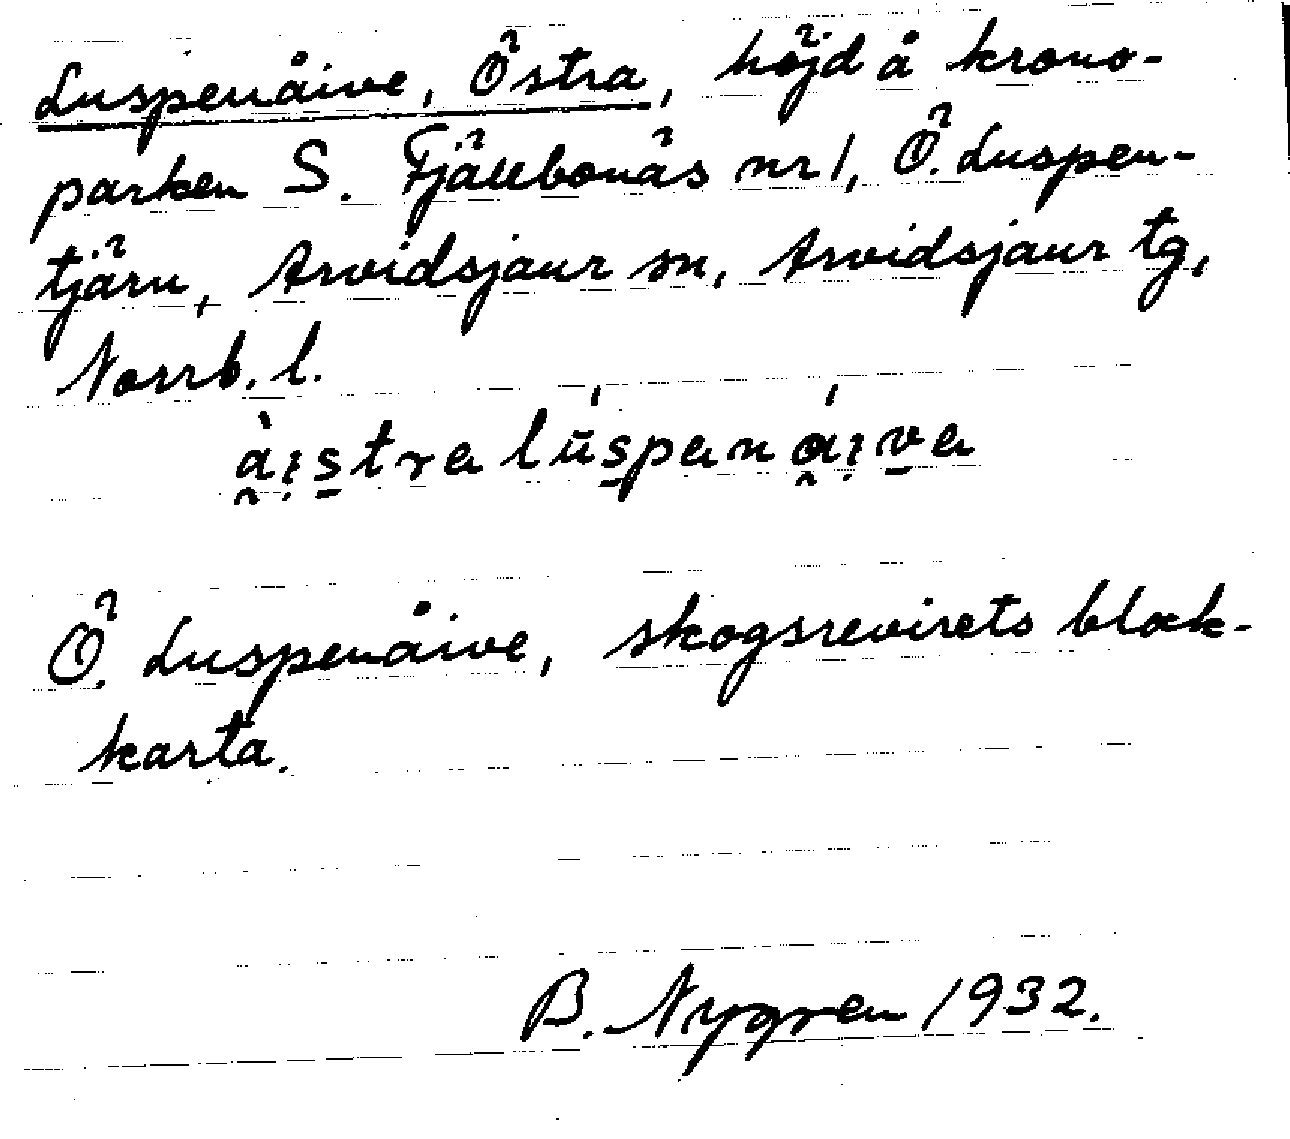 Luspenåive, Östra, höjd å krono-
parken S. Fjällbonäs nr 1, Ö. Luspen-
tjärn, Arvidsjaur sn, Arvidsjaur tg,
Norrb. l.
àistra lūspanáiva
Ö. Luspenåive, skogsrevirets block-
karta.
B. Nygren 1932.